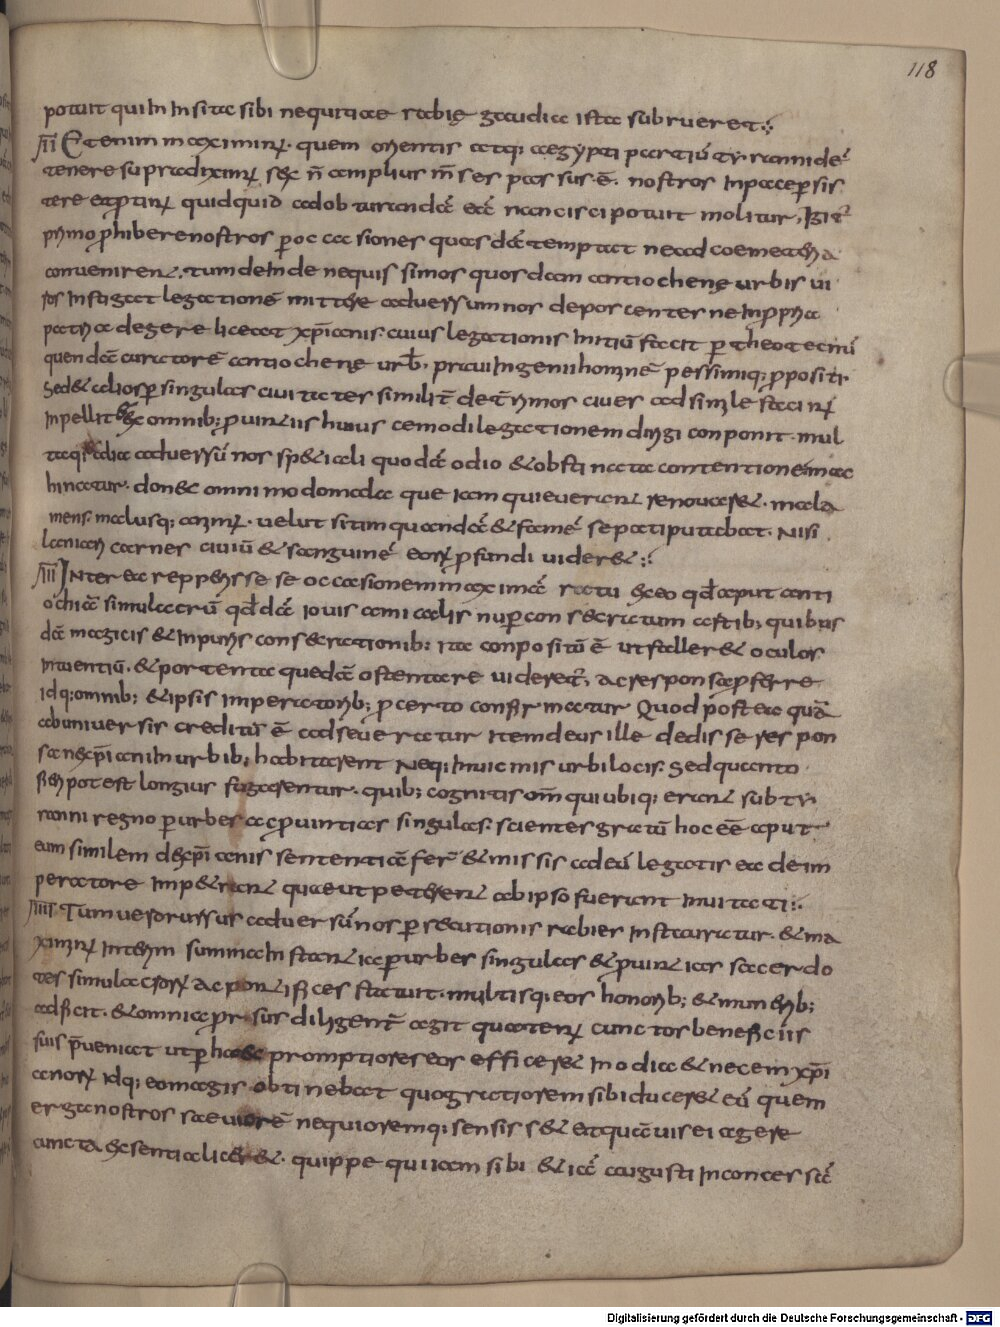 118
potuit qui In Insitae sibi nequitiae rabie gaudia ista subrueret:·
II Etenim maximinus. quem orientis atq; aegypti partiū tyrannidē
tenere supradiximus sed n̄ amplius m̄ses passus ē. nostros In pace persis
tere et protinus quidquid ad obturandā eā nancisci potuit molitur, Igit̄
primo prohibere nostros per occasiones quasdā temptat ne ad coemeteria
convenirent. tum deInde nequissimos quosdam antiochene urbis ui
ros Instigat legationē mittere adversum nos deposcentes ne In propria
patria degere liceat xp̄ianis. cuius legationis Initiū facit per theotecnū
quendā curatorē antiochene urb̄. praui Ingenii hominē pessimiq; propositi
Sed et alios per singulas civitates similit̄ deterrimos cives ad simile facinus
Inpellit et ex omnib; provinciis huiuscemodi legationem dirigi conponit. mul
taq; alia adversū nos species caeli quodā odio et obstinata contentione mac
hinatur. donec omnimodo mala que iam quieverant renovaret. mala
mens. malusq; animus. velut sitim quandā et famē se pati putabat. Nisi
laniari carnes civiū et sanguinē eorum profundi videret:·
III Interea repperisse se occasionem maximā ratus ex eo qd̄ aput anti
ochiā simulacrū qd̄dā iovis amicalis nuper consecratum astib; quibus
dā magicis et Inpuris consecrationib; ita conpositū ē ut falleret oculos
Intuentiū. et portenta quedā ostentare videret̄, ac responsa proferre
Idq; omnib; et ipsis Imperatorib; pro certo confirmatur Quod postea quā
ab universis creditū ē adseveratur Item deus ille dedisse respon
sa nec xp̄iani In urbib; habitarent Neq; In vicinis urbi locis. Sed quanto
fieri potest longius fugarentur. quib; cognitis om̄ qui ubiq; erant sub ty
ranni regno per urbes ac provintias singulas. scientes gratū hoc eē aput
eum similem de xp̄ianis sententiā fer̄ et missis ad eū legatis ea de im
peratore Impetrant quae ut peterent ab ipso fuerant Invitati:·
IIII. Tum vero rursus adversū nos persecutionis rabies Instauratur. et ma
ximinus Interim summa Instantia per urbes singulas et provintias sacerdo
tes simulacrorum ac pontifices statuit. multisq; eos honorib; et munerib;
adficit. et omnia prorsus diligent̄ agit quatenus cunctos beneficiis
suis praeveniat ut per haec promptiores eos efficeret In odia et necem xp̄i
anorum Idq; eo magis obtinebat quo gratiorem sibi duceret eū quem
erga nostros saeviorē nequioremq; sensisset et quavis ei agere
cuncta ex sententia liceret. quippe qui iam sibi et iā augusti Inconcessā
Digitalisierung gefördert durch die Deutsche Forschungsgemeinschaft - DFG